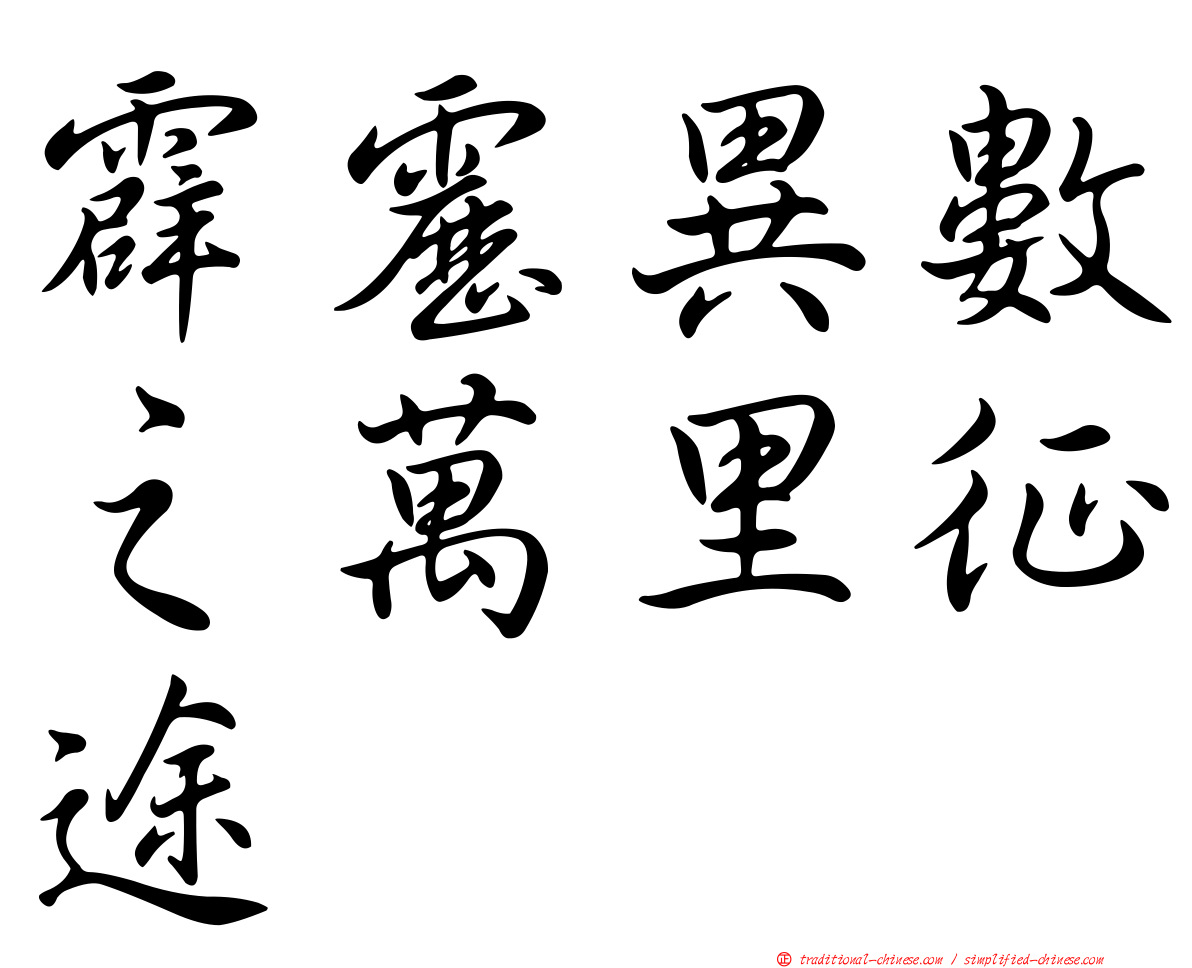 霹靂異數
之萬里征
途
正 traditional-chinese.com / simplified-chinese.com